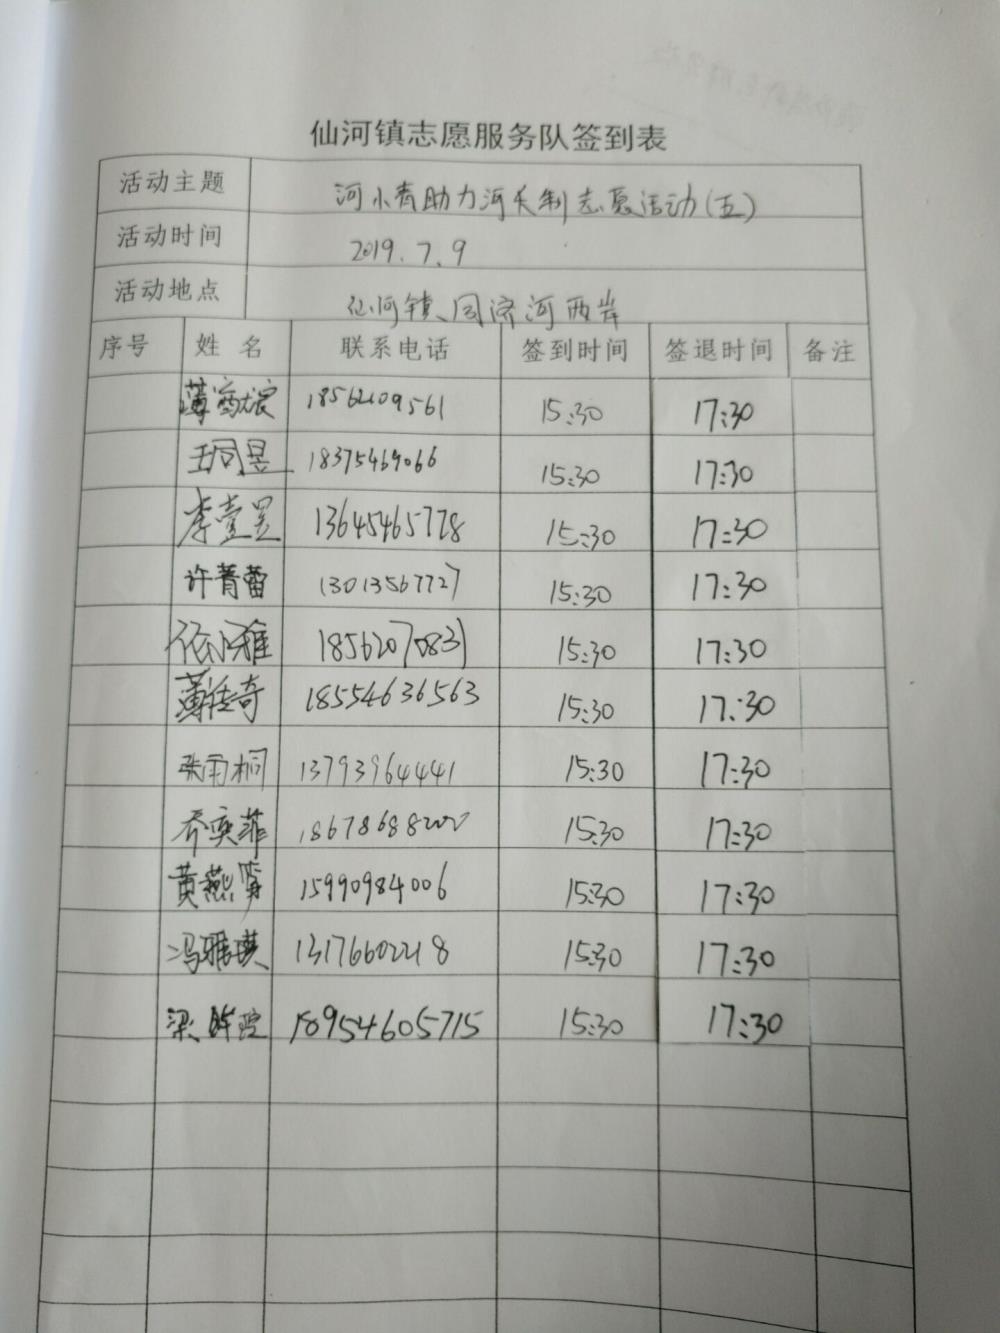 仙河镇志愿服务队签到表
活动主题 河小青助力河长制志愿活动(五)
活动时间 2019.7.9
活动地点 仙河镇、同济河两岸
序号 姓 名 联系电话 签到时间 签退时间 备注
18562109561 15:30 17:30
王同昱 18375469066 15:30 17:30
李壹昱 13645465778 15:30 17:30
许菁蕾 13013567727 15:30 17:30
18562070831 15:30 17:30
薄传奇 18554636563 15:30 17:30
张雨桐 13793964441 15:30 17:30
乔奕菲 18678688200 15:30 17:30
黄燕 15990984006 15:30 17:30
冯雅琪 13176602218 15:30 17:30
梁 18954605715 15:30 17:30